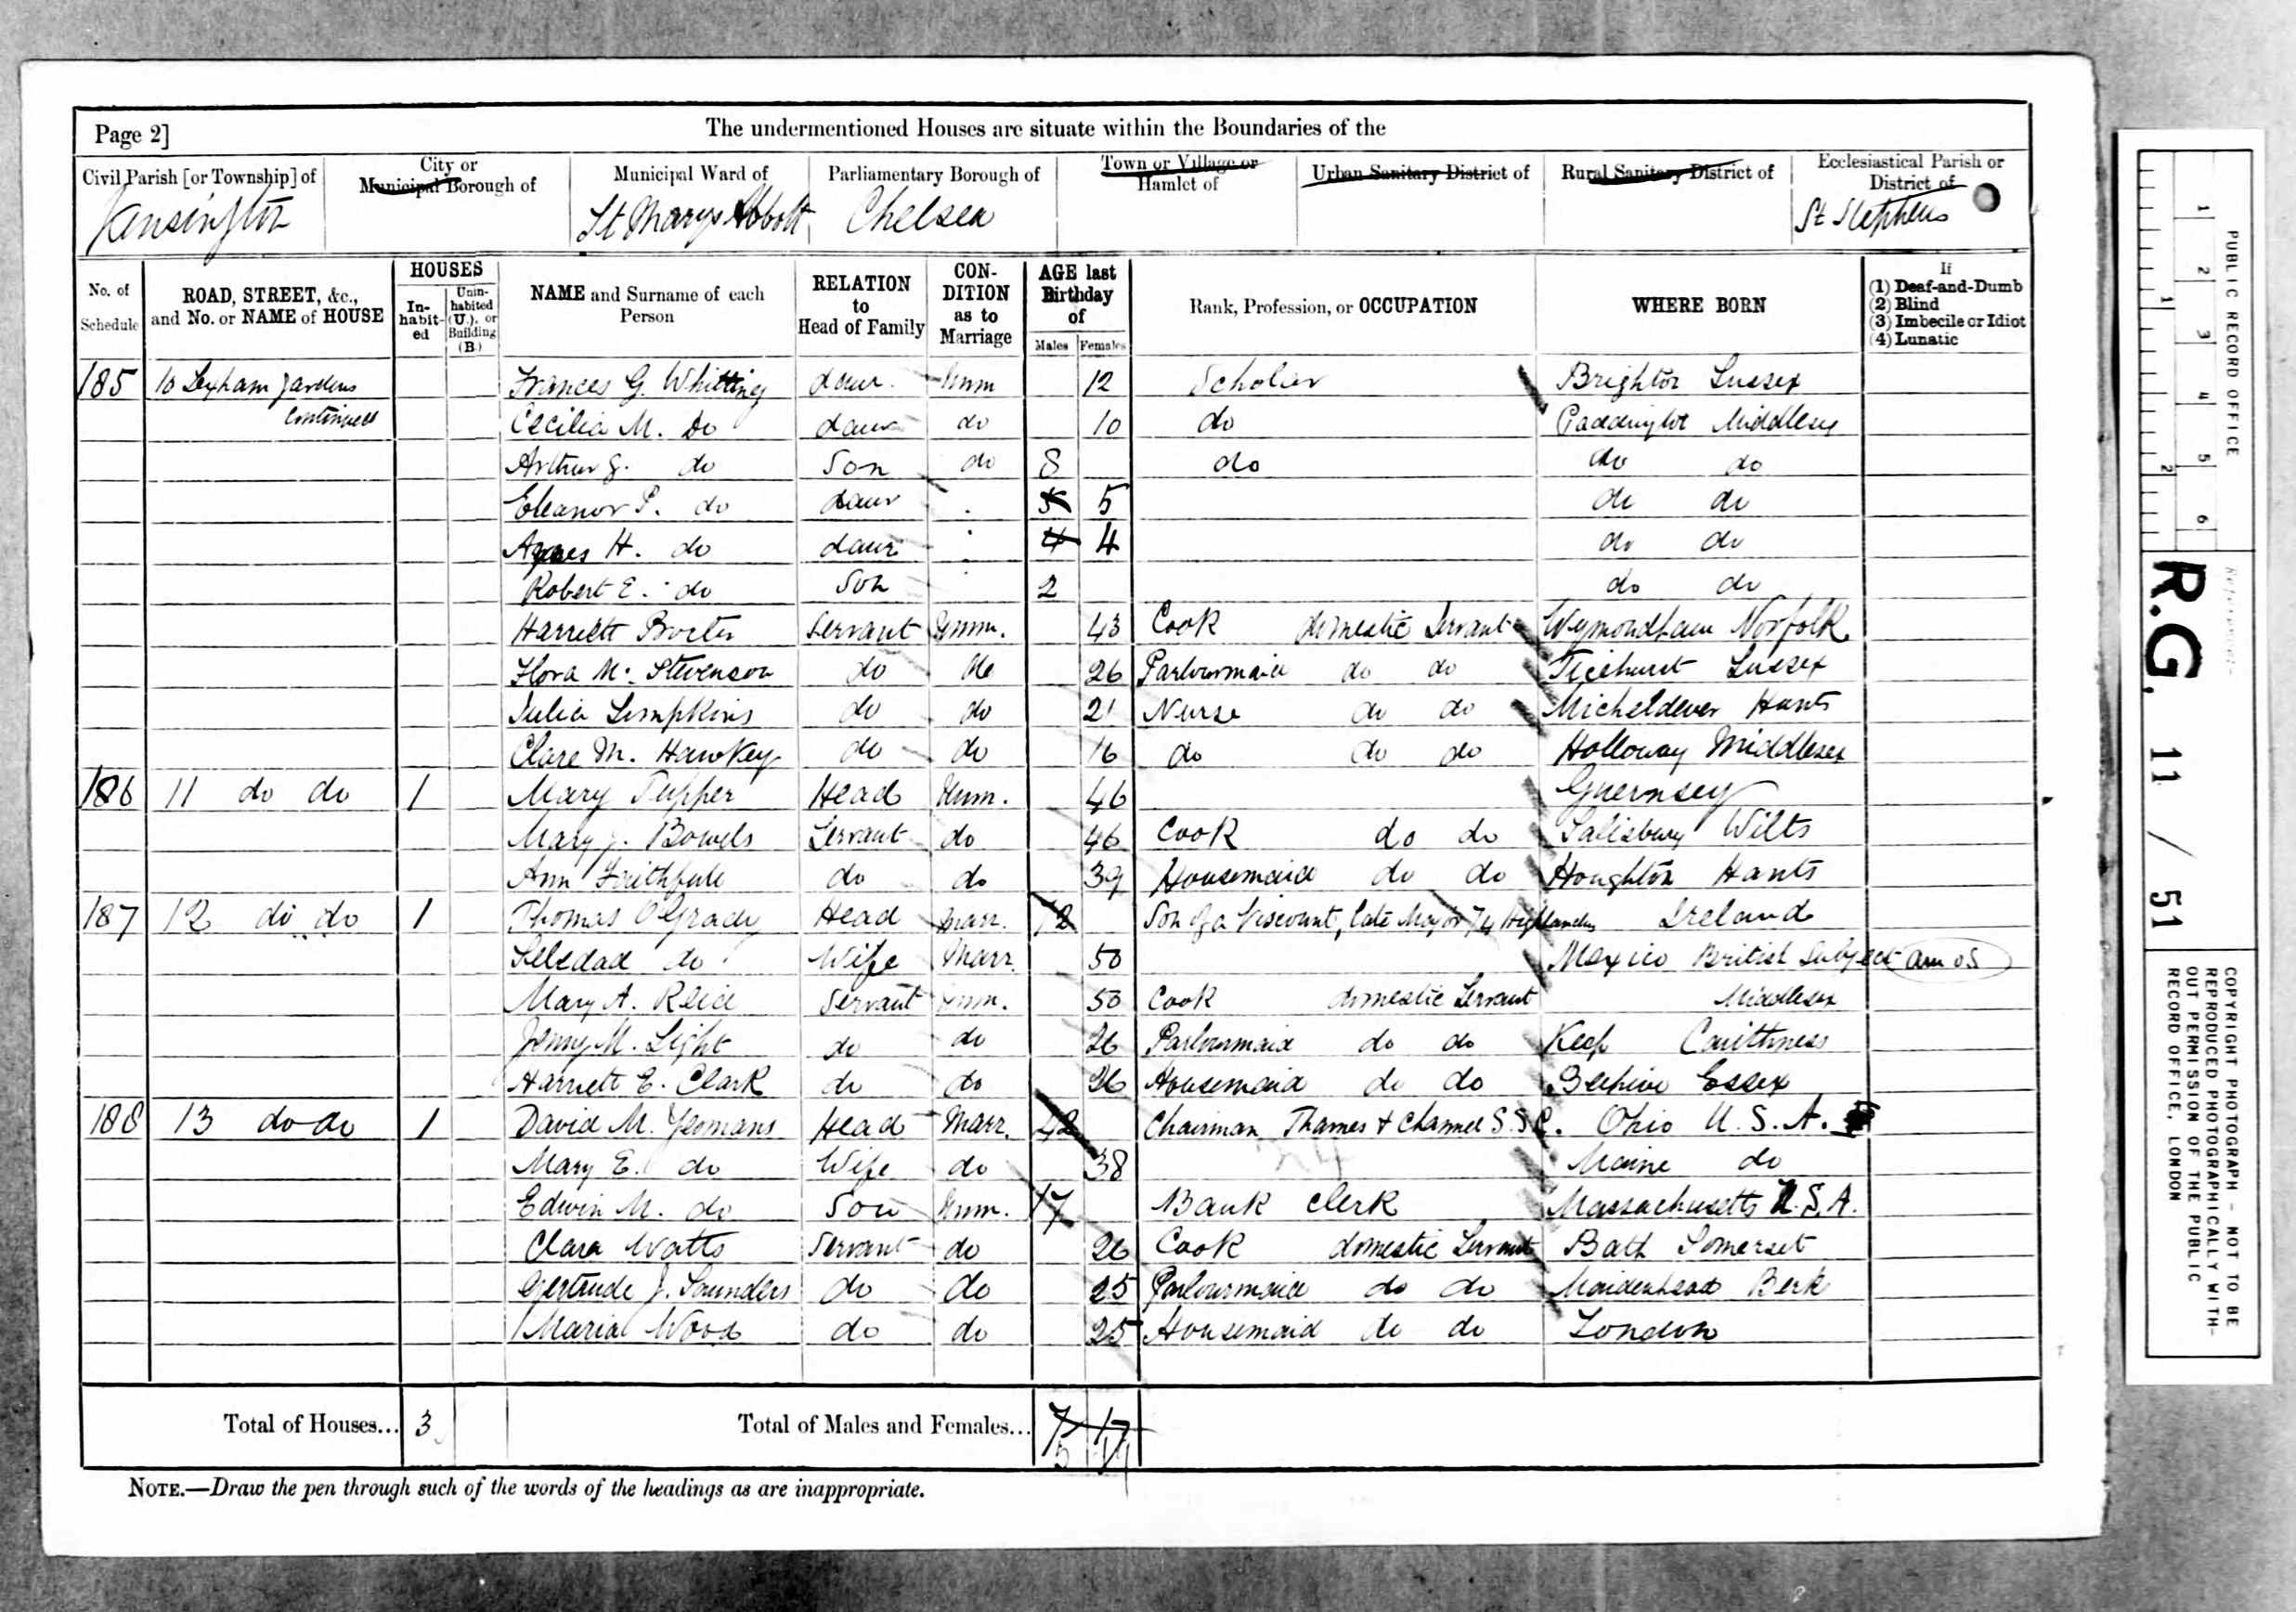 Page 2]
The undermentioned Houses are situate within the Boundaries of the
Civil Parish [or Township] of
Kensington
City or Municipal Borough of
Municipal Ward of
St Marys Abbott
Parliamentary Borough of
Chelsea
Town or Village or Hamlet of
Urban Sanitary District of
Rural Sanitary District of
Ecclesiastical Parish or District of
St Stephens
No. of Schedule
ROAD, STREET, &c., and No. or NAME of HOUSE
HOUSES
In-habit-ed
Unin-habited (U.), or Building (B.)
NAME and Surname of each Person
RELATION to Head of Family
CON-DITION as to Marriage
AGE last Birthday of
Males
Females
Rank, Profession, or OCCUPATION
WHERE BORN
If
(1) Deaf-and-Dumb
(2) Blind
(3) Imbecile or Idiot
(4) Lunatic
185 10 Lexham Gardens Frances G. Whitting daur. Unm 12 Scholar Brighton Sussex
continued Cecilia M. Do daur do 10 do Paddington Middlesex
Arthur G. do Son do 8 do do do
Eleanor P. do daur 5 5 do do
Agnes H. do daur 4 4 do do
Robert E. do Son 2 do do
Harriett Servant Unm. 43 Cook domestic Servant Wymondham Norfolk
Flora M. Stevenson do do 26 Parlourmaid do do Ticehurst Sussex
Julia Simpkins do do 21 Nurse do do Micheldever Hants
Clare M. Hawkey do do 16 do do do Holloway Middlesex
186 11 do do 1 Mary Tupper Head Unm. 46 Guernsey
Mary J. Bowels Servant do 46 Cook do do Salisbury Wilts
Ann Faithfull do do 39 Housemaid do do Houghton Hants
187 12 do do 1 Thomas O'Grady Head Marr. Son of a Viscount, late Major 74 Highlanders Ireland
do Wife Marr. 50 Mexico British Subject
Mary A. Reid Servant Unm. 50 Cook domestic Servant Middlesex
Jenny M. Light do do 26 Parlourmaid do do Keep Caithness
Harriett E. Clark do do 26 Housemaid do do Beehive Essex
188 13 do do 1 David M. Yeomans Head Marr. 42 Chairman Thames & Channel S.S.C. Ohio U.S.A.
Mary E. do Wife do 38 Maine do
Edwin M. do Son Unm. 17 Bank Clerk Massachusetts U.S.A.
Clara Watts Servant do 26 Cook domestic Servant Bath Somerset
Gertrude J. Saunders do do 25 Parlourmaid do do Maidenhead Berk
Maria Wood do do 25 Housemaid do do London
Total of Houses... 3
Total of Males and Females... 7 17
5
NOTE.—Draw the pen through such of the words of the headings as are inappropriate.
PUBLIC RECORD OFFICE
1 2 3 4 5 6
1 2
Reference:-
R.G. 11 / 51
COPYRIGHT PHOTOGRAPH - NOT TO BE
REPRODUCED PHOTOGRAPHICALLY WITH-
OUT PERMISSION OF THE PUBLIC
RECORD OFFICE, LONDON